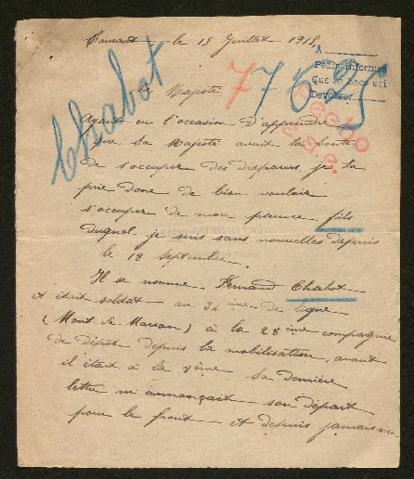 le 15 Juillet 1915
A
Pedir informes
Que se hace aqui
Devolver
77525
Chabot
Majesté
Ayant eu l'occasion d'apprendre
que Sa Majesté avait la bonté
de s'occuper des disparus je la
prie donc de bien vouloir
s'occuper de mon pauvre fils
duquel je suis sans nouvelles depuis
le 18 septembre
Il se nomme Fernand Chabot
et était soldat au 34 ième de ligne
(Mont de Marsan) à la 28 ième compagnie
de dépôt depuis la mobilisation, avant
il était à la Sa dernière
lettre m'annonçait son départ
pour le front et depuis jamais